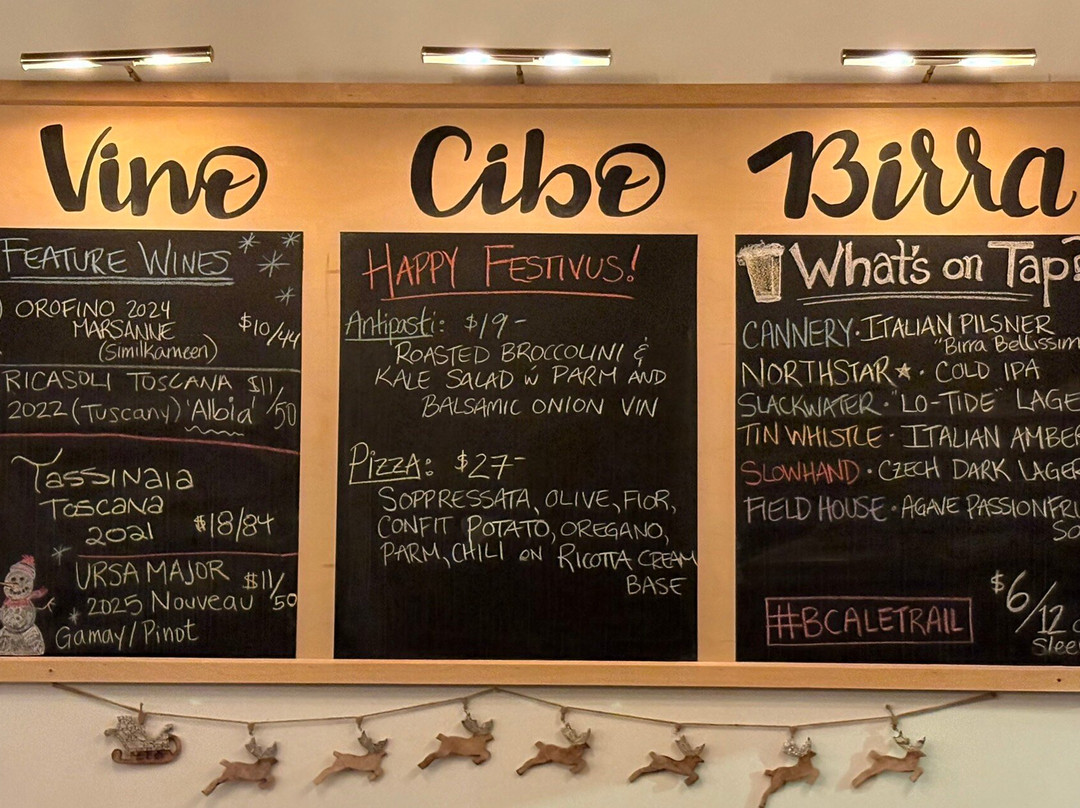 Vino
FEATURE WINES
OROFINO 2024
MARSANNE
(Similkameen)
$10/44
RICASOLI TOSCANA $11/
2022 (Tuscany) 'Albia' 50
Tassinaia
Toscana
2021 $18/84
URSA MAJOR $11/
2025 Nouveau 50
Gamay/Pinot
Cibo
HAPPY FESTIVUS!
Antipasti: $19-
ROASTED BROCCOLINI &
KALE SALAD w PARM AND
BALSAMIC ONION VIN
PIZZA: $27-
SOPPRESSATA, OLIVE, FIOR,
CONFIT POTATO, OREGANO,
PARM, CHILI on RICOTTA CREAM
BASE
Birra
What's on Tap?
CANNERY · ITALIAN PILSNER
"Birra Bellissim
NORTHSTAR · COLD IPA
SLACKWATER · "LO-TIDE" LAGE
TIN WHISTLE · ITALIAN AMBER
SLOWHAND · CZECH DARK LAGER
FIELD HOUSE · AGAVE PASSIONFRU
So
$6/12
Slee
#BCALETRAIL